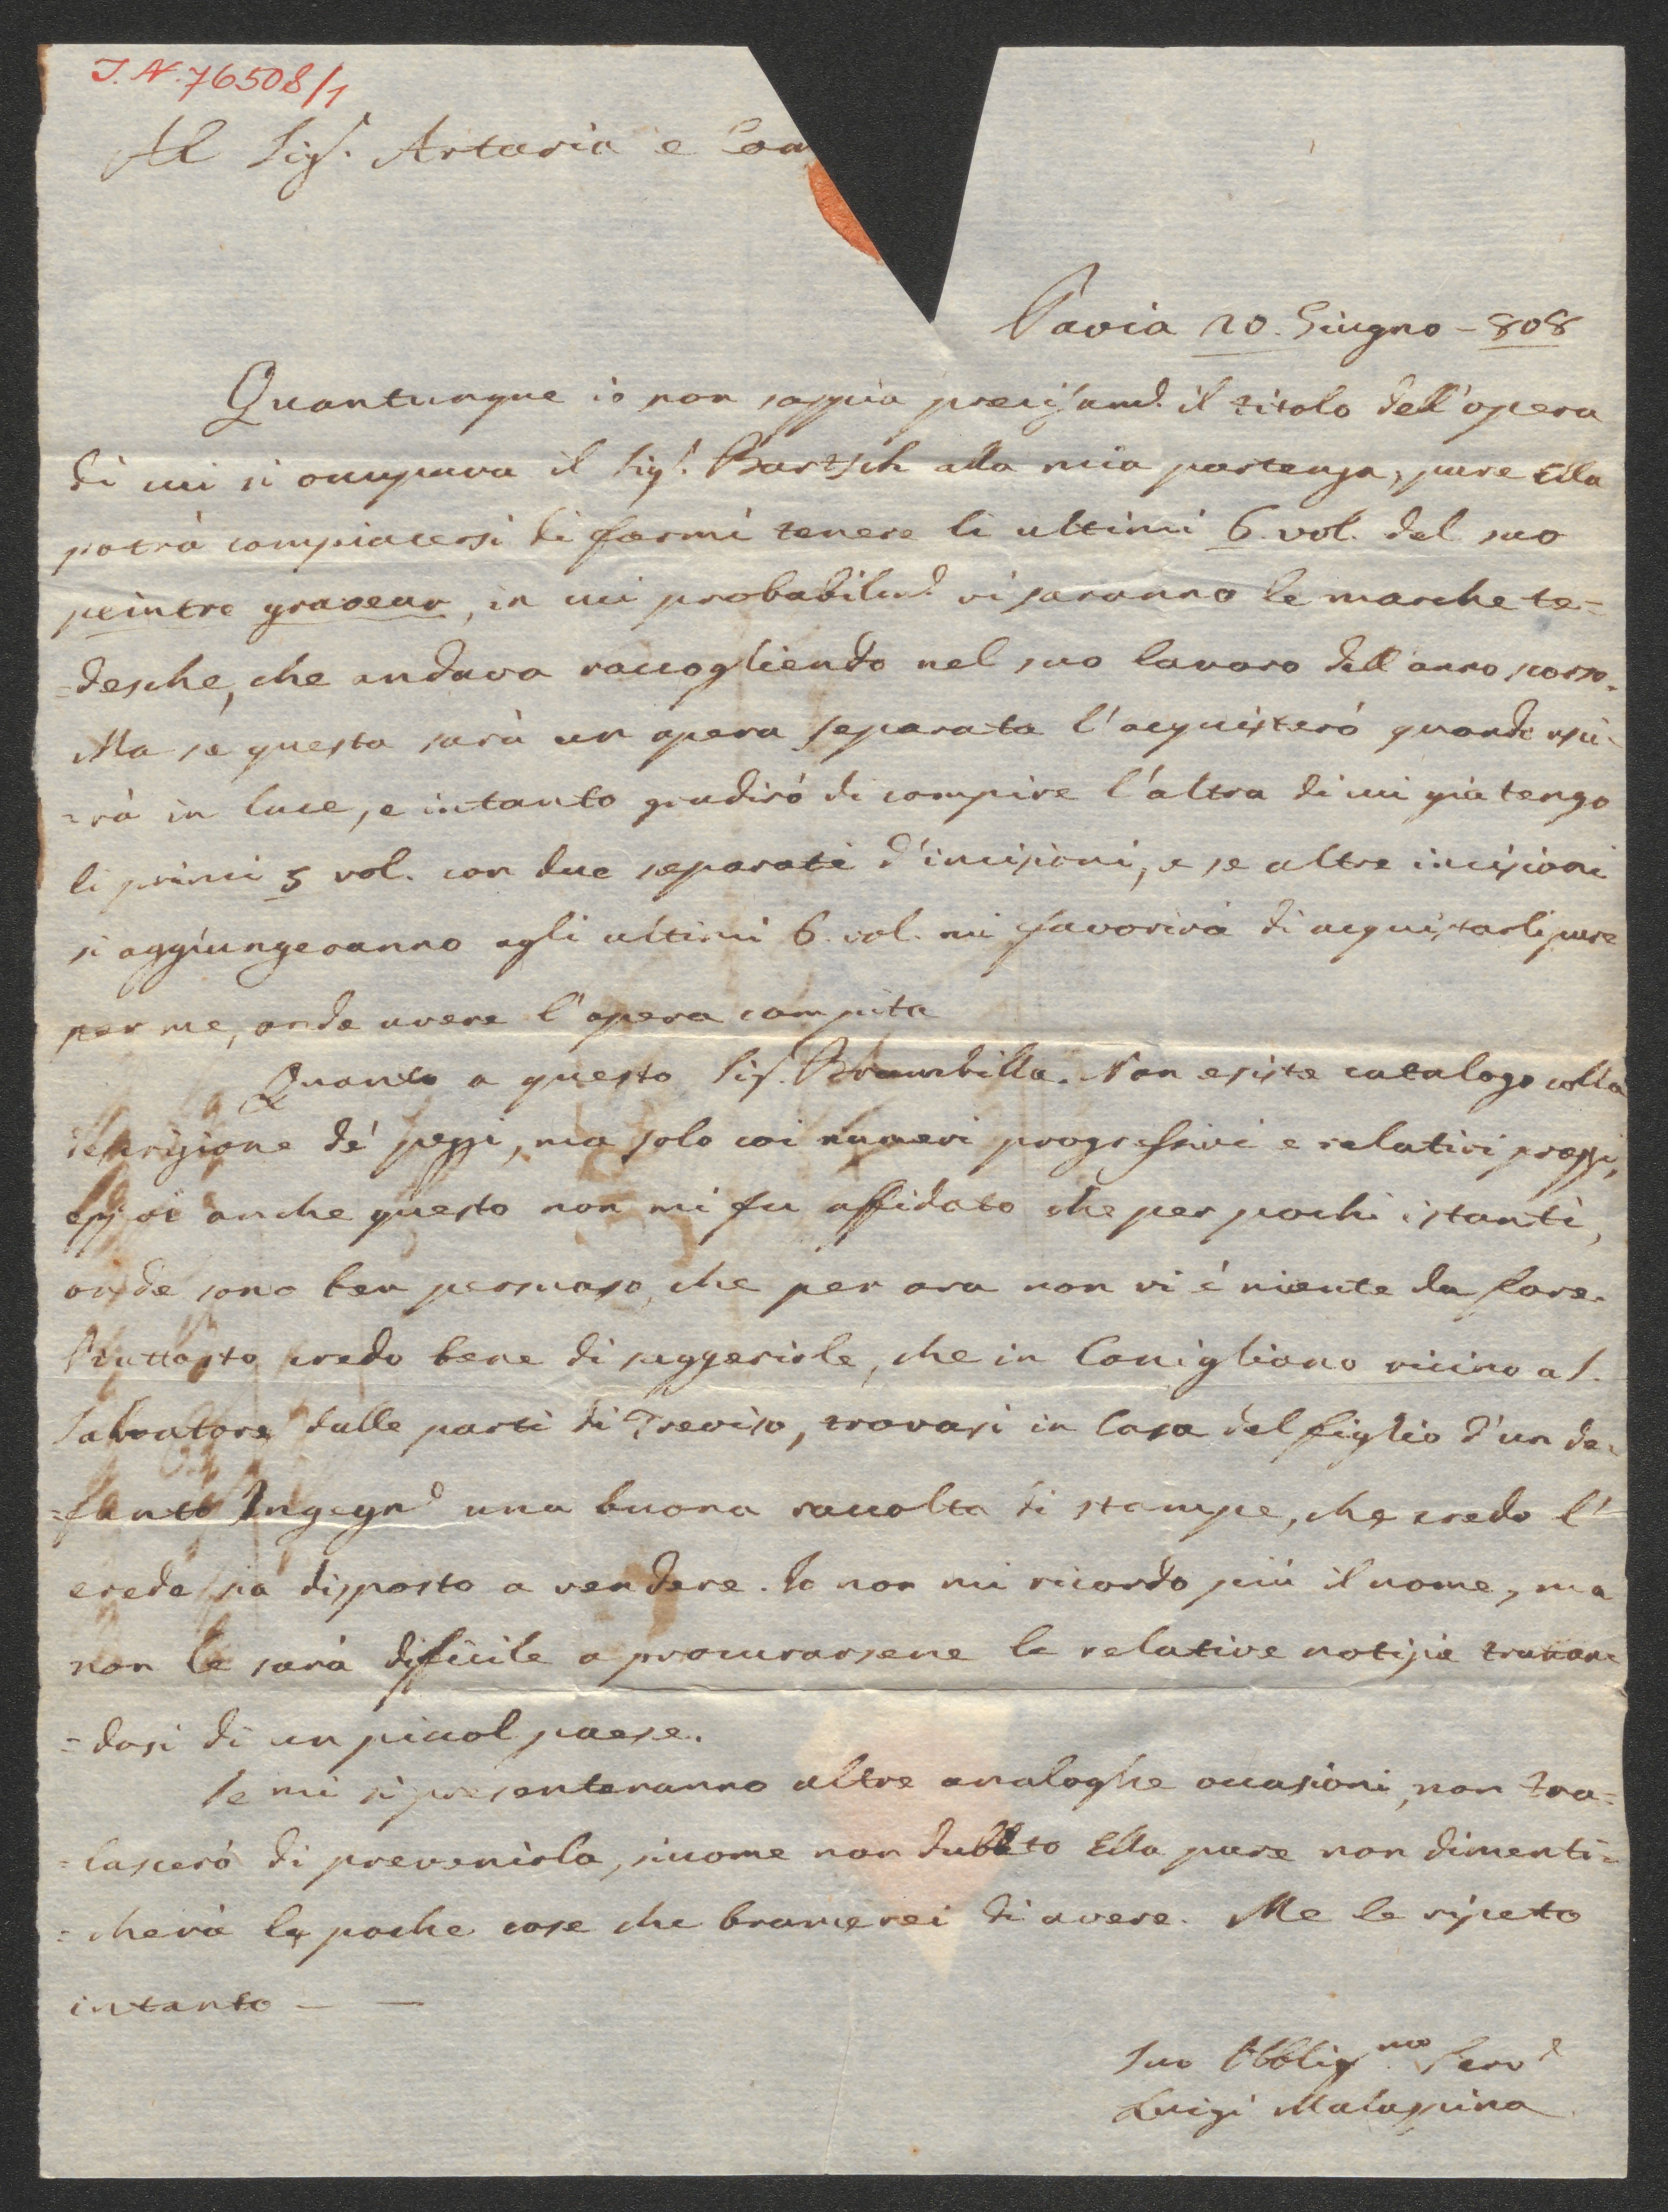 I. N. 76508/1
Al Sigr. Artaria e Com
Pavia 20. Giugno - 808
Quantunque io non sappia precisamd. il titolo dell'opera
di cui si occupava il Sigr. Bartsch alla mia partenza, pure Ella
potrà compiacersi di farmi tenere li ultimi 6. vol. del suo
peintre graveur, in cui probabilmd. vi saranno le marche te=
=desche, che andava raccogliendo nel suo lavoro dell'anno scorso.
Ma se questa sarà un opera separata l'acquisterò quando usci=
=rà in luce, e intanto gradirò di compire l'altra di cui già tengo
li primi 5 vol. con due separati d'incisioni, e se altre incisioni
si aggiungeranno agli ultimi 6. vol. mi favorirà di acquistarli pure
per me, onde avere l'opera compita
Quanto a questo Sigr. Brambilla. Non esiste catalogo colla
descrizione de' pezzi, ma solo coi numeri progressivi e relativi prezzi,
anche questo non mi fu affidato che per pochi istanti,
onde sono ben persuaso, che per ora non vi è niente da fare.
Piuttosto credo bene di suggerirle, che in Conigliano vicino a S.
Salvatore dalle parti di Treviso, trovasi in Casa del figlio d'un de=
=funto Ingegnd una buona raccolta di stampe, che credo l'
erede sia disposto a vendere. Io non mi ricordo più il nome, ma
non le sarà difficile a procurarsene le relative notizie trattan=
=dosi di un piccol paese.
Se mi si presenteranno altre analoghe occasioni, non tra=
=lascerò di prevenirla, siccome non dubbito Ella pure non dimenti=
=cherà le poche cose che bramerei di avere. Me le ripeto
intanto — —
Suo Obbligmo Servd
Luigi Malaspina